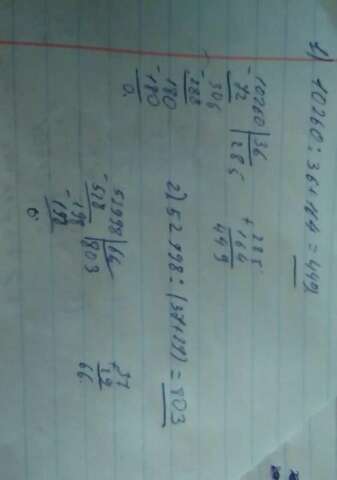 1) 10260 : 36 + 164 = 449
10260 | 36
- 72 | 285
306
- 288
180
- 180
0
285
+ 164
449
2) 52998 : (37+29) = 803
52998 | 66
- 528 | 803
198
- 198
0
37
+ 29
66